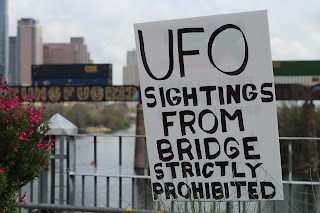 UFO
SIGHTINGS
FROM
BRIDGE
STRICTLY
PROHIBITED